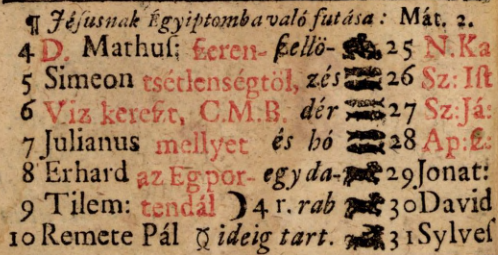 ¶ Jésusnak Egyiptomba való futása: Mát. 2.
4 D. Mathuſ: ſzeren- ſzellö- 25 N. Ka
5 Simeon tsétlenségtöl, zés 26 Sz: Iſt
6 Viz kereſzt, C.M.B. dér 27 Sz: Já:
7 Julianus mellyet és hó 28 Ap: ſz:
8 Erhard az Eg por- egy da- 29 Jonat:
9 Tilem: tendál ☽ 4 r. rab 30 David
10 Remete Pál ☿ ideig tart. 31 Sylveſ